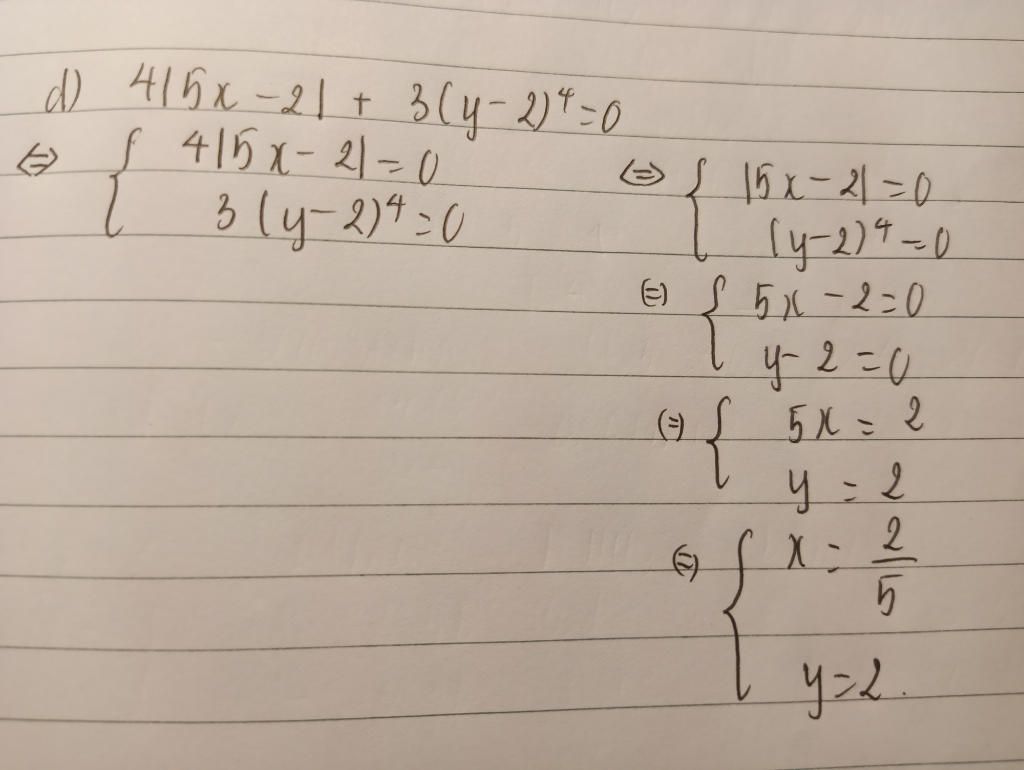 d) 4|5x - 2| + 3(y - 2)⁴ = 0
⇔ { 4|5x - 2| = 0
3(y - 2)⁴ = 0
⇔ { |5x - 2| = 0
(y - 2)⁴ = 0
⇔ { 5x - 2 = 0
y - 2 = 0
⇔ { 5x = 2
y = 2
⇔ { x = 2/5
y = 2.